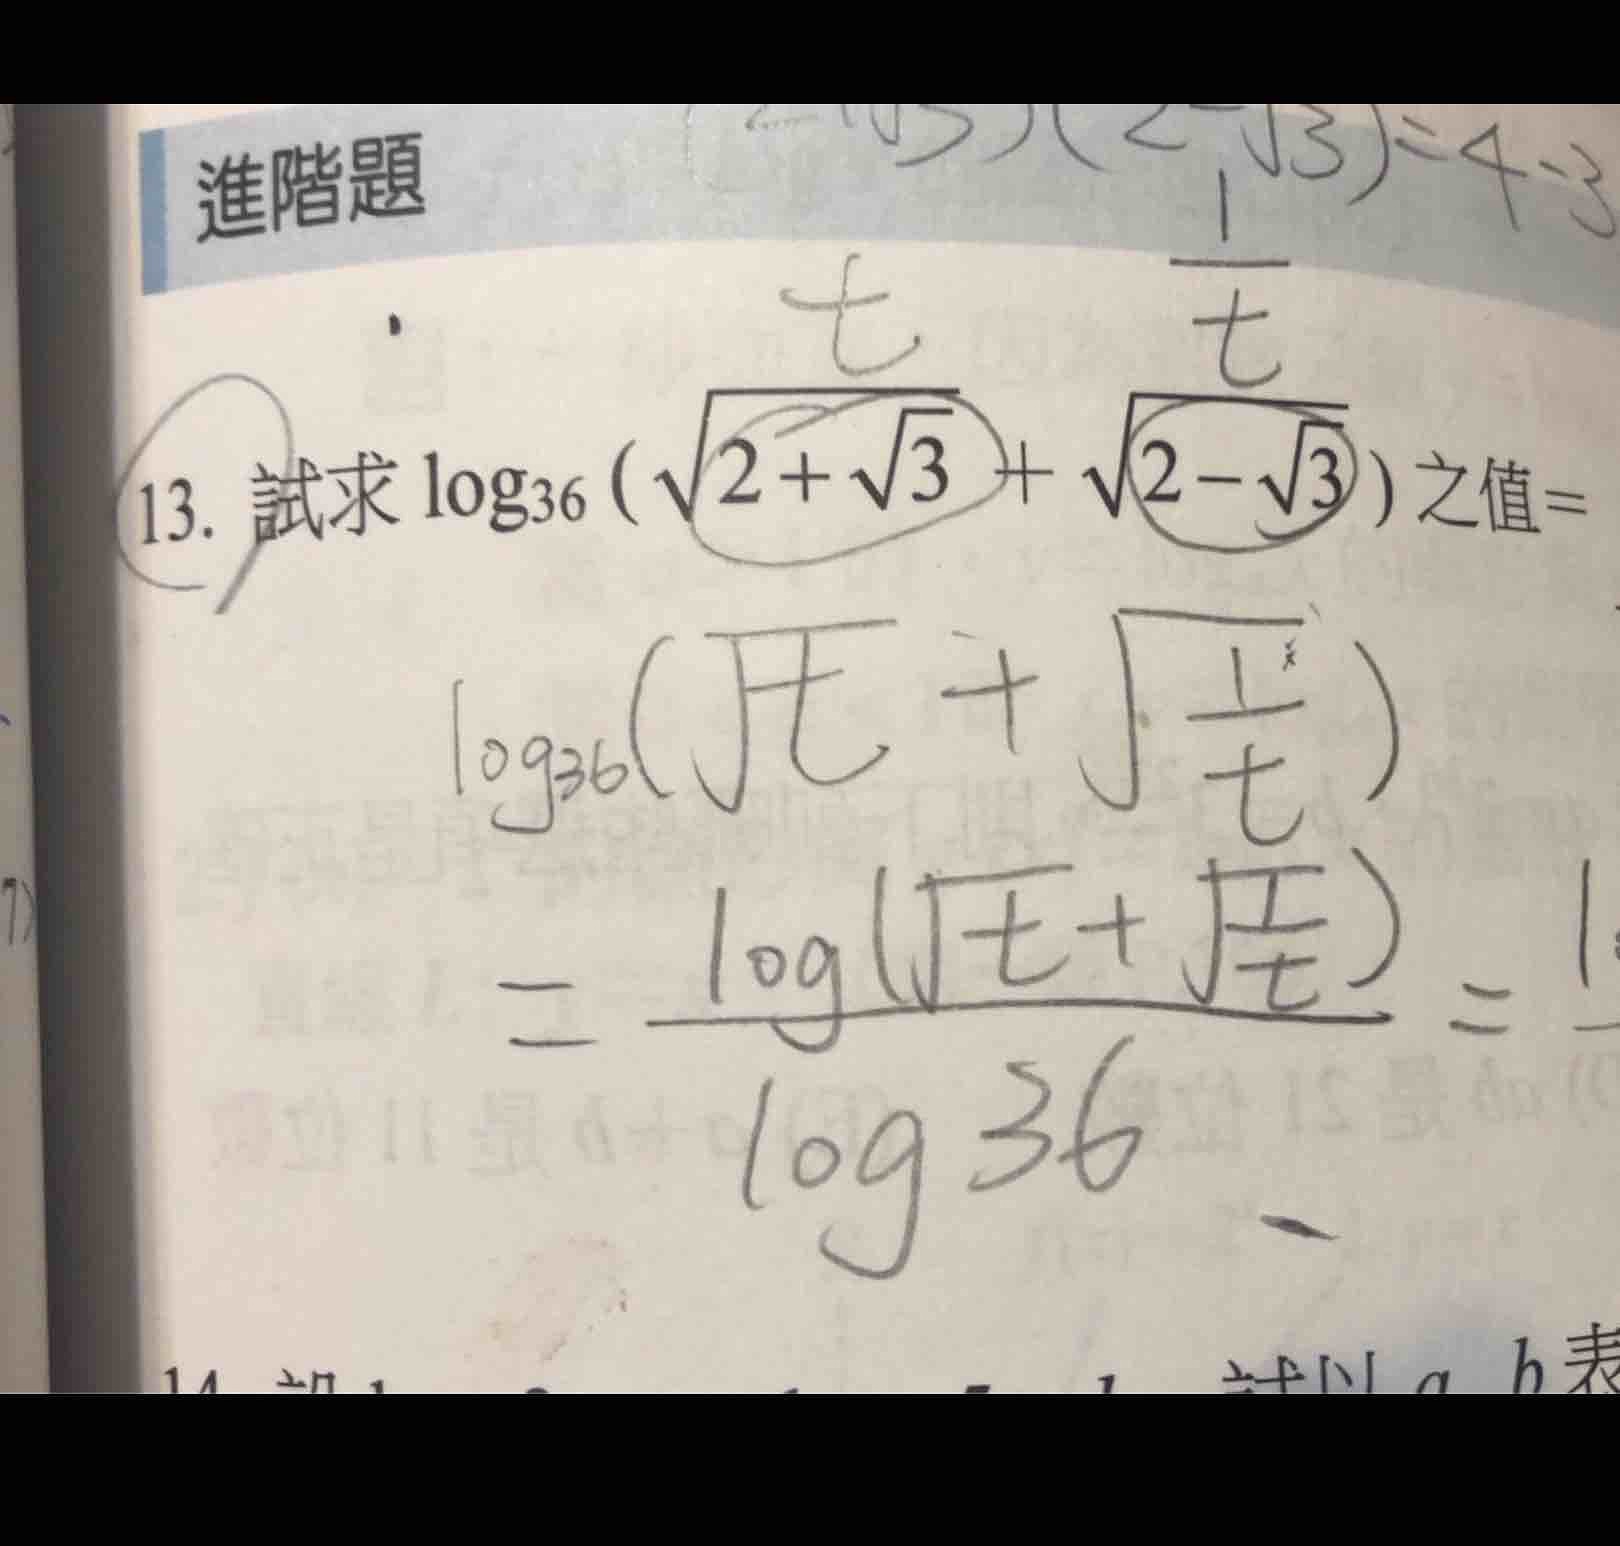 √3)(2-√3)=4-3
進階題
t 1/t
13. 試求 log₃₆ (√(2+√3) + √(2-√3)) 之值=
log₃₆(√t + √(1/t))
= log(√t + √(1/t)) / log 36 =
14.
試以 a b 表